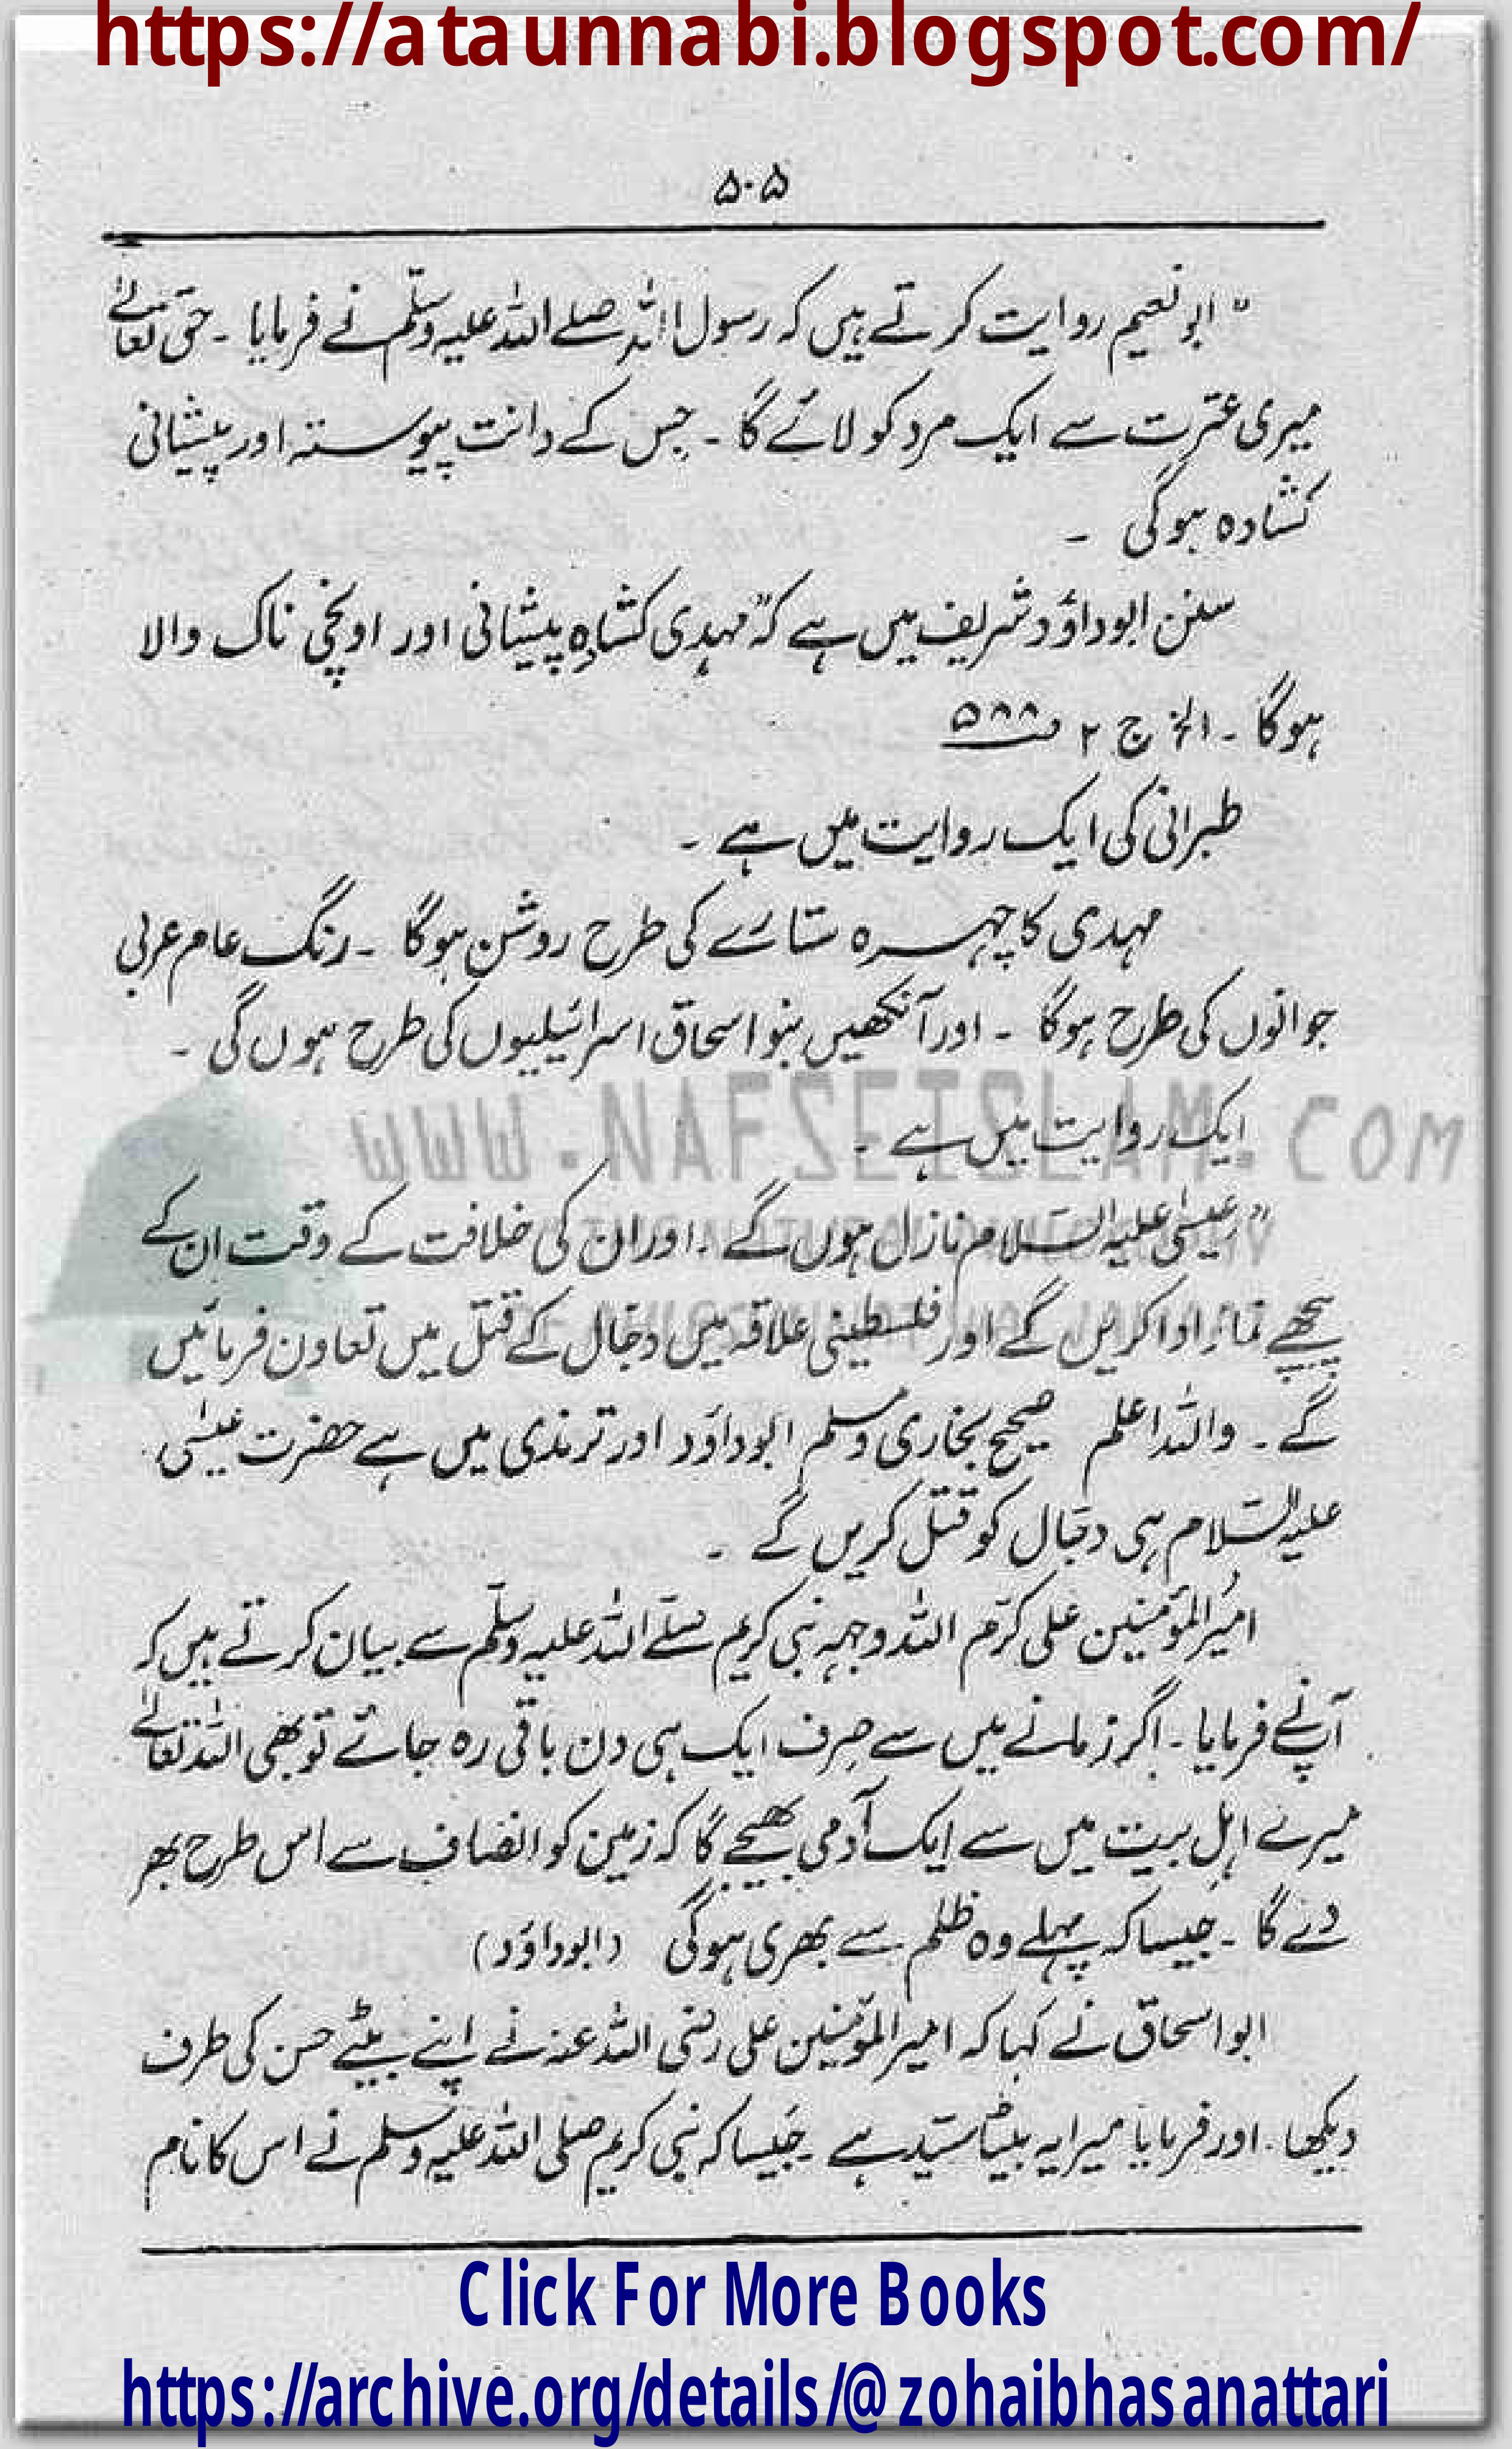 https://ataunnabi.blogspot.com/
۵۰۵
" ابونعیم روایت کرتے ہیں کہ رسول اللہ صلے اللہ علیہ وسلّم نے فرمایا ۔ حق تعالےٰ
میری عترت سے ایک مرد کو لائے گا ۔ جس کے دانت پیوستہ اور پیشانی
کشادہ ہوگی ۔
سنن ابوداؤد شریف میں ہے کہ "مہدی کشادہ پیشانی اور اونچی ناک والا
ہوگا ۔ الخ ج ۲ ص۵۸۸
طبرانی کی ایک روایت میں ہے ۔
مہدی کا چہرہ ستارے کی طرح روشن ہوگا ۔ رنگ عام عربی
جوانوں کی طرح ہوگا ۔ اور آنکھیں بنو اسحاق اسرائیلیوں کی طرح ہوں گی ۔
WWW.NAFSEISLAM.COM
ایک روایت میں ہے ۔
" عیسٰی علیہ السّلام نازل ہوں گے ۔ اور ان کی خلافت کے وقت ان کے
پیچھے نماز ادا کریں گے اور فلسطینی علاقہ میں دجّال کے قتل میں تعاون فرمائیں
گے ۔ واللہ اعلم صحیح بخاری و مسلم ابوداؤد اور ترمذی میں ہے حضرت عیسٰی
علیہ السّلام ہی دجّال کو قتل کریں گے ۔
امیرُالمؤمنین علی کرّم اللہ وجہہ نبی کریم صلّے اللہ علیہ وسلّم سے بیان کرتے ہیں کہ
آپ نے فرمایا ۔ اگر زمانے میں سے صِرف ایک ہی دن باقی رہ جائے تو بھی اللہ تعالےٰ
میرے اہلِ بیت میں سے ایک آدمی بھیجے گا کہ زمین کو انصاف سے اس طرح بھر
دے گا ۔ جیسا کہ پہلے وہ ظلم سے بھری ہوگی (ابوداؤد)
ابواسحاق نے کہا کہ امیرالمؤمنین علی رضی اللہ عنہ نے اپنے بیٹے حسن کی طرف
دیکھا ۔ اور فرمایا میرا یہ بیٹا سیّد ہے ۔ جیسا کہ نبی کریم صلی اللہ علیہ وسلم نے اس کا نام
Click For More Books
https://archive.org/details/@zohaibhasanattari